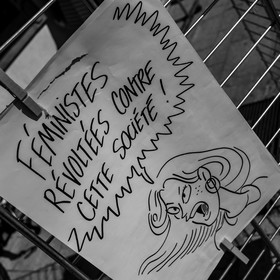 FÉMINISTES
RÉVOLTÉES CONTRE
CETTE SOCIÉTÉ !